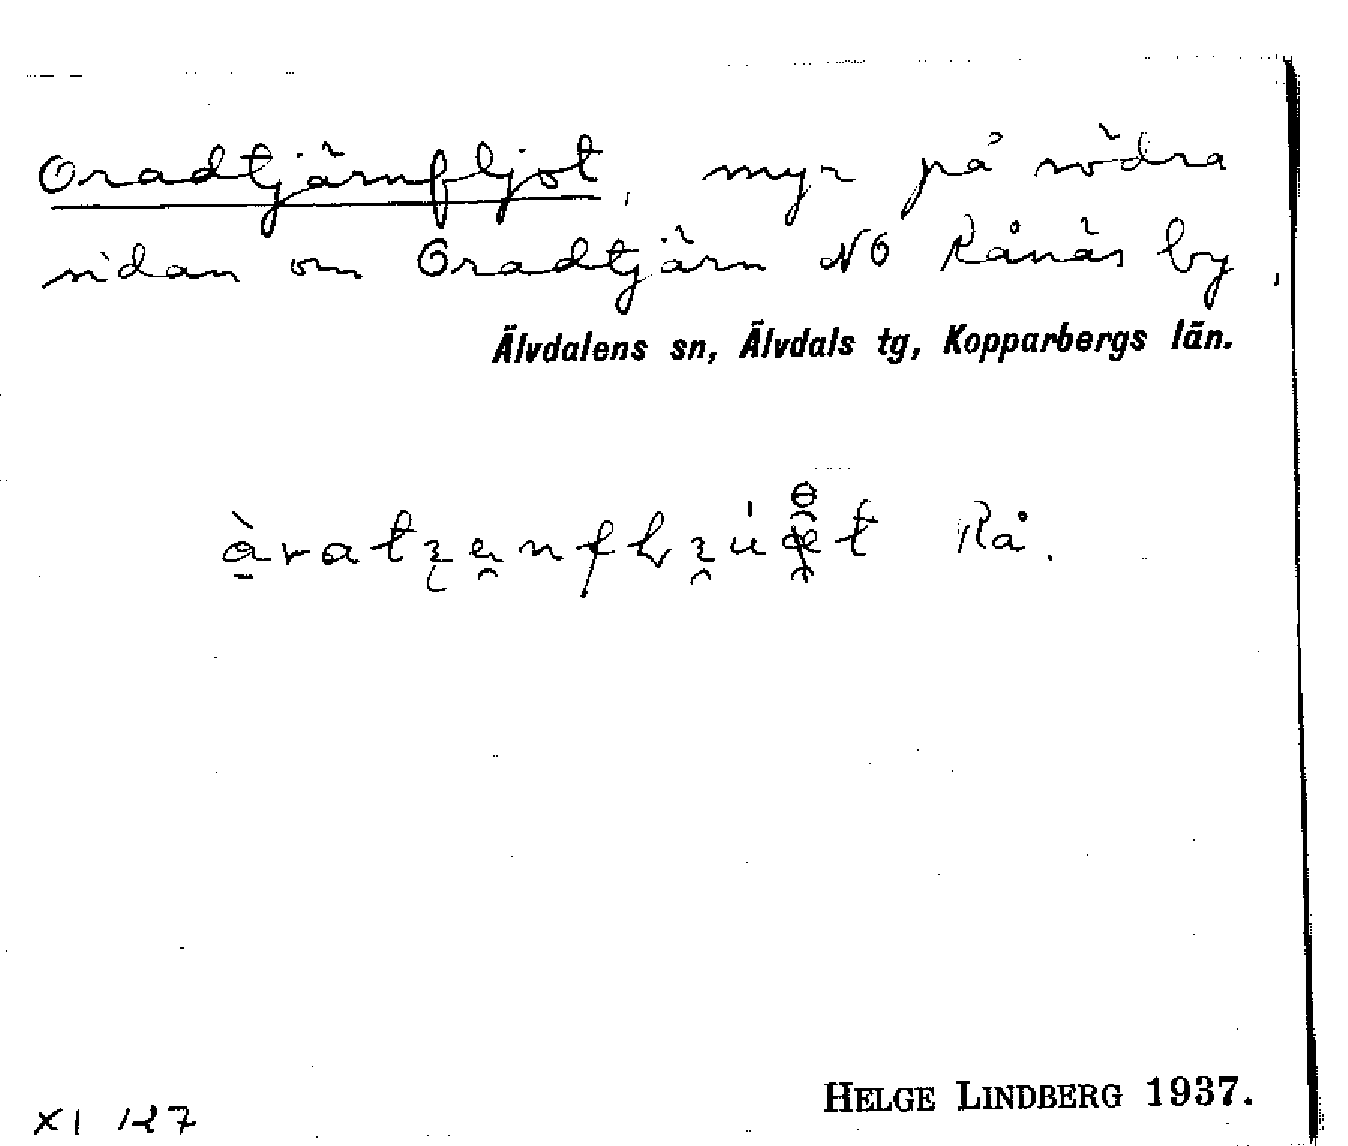 Oradtjärnfljot, myr på södra
sidan om Oradtjärn NO Rånäs by,
Älvdalens sn, Älvdals tg, Kopparbergs län.
Rå.
HELGE LINDBERG 1937.
XI 127